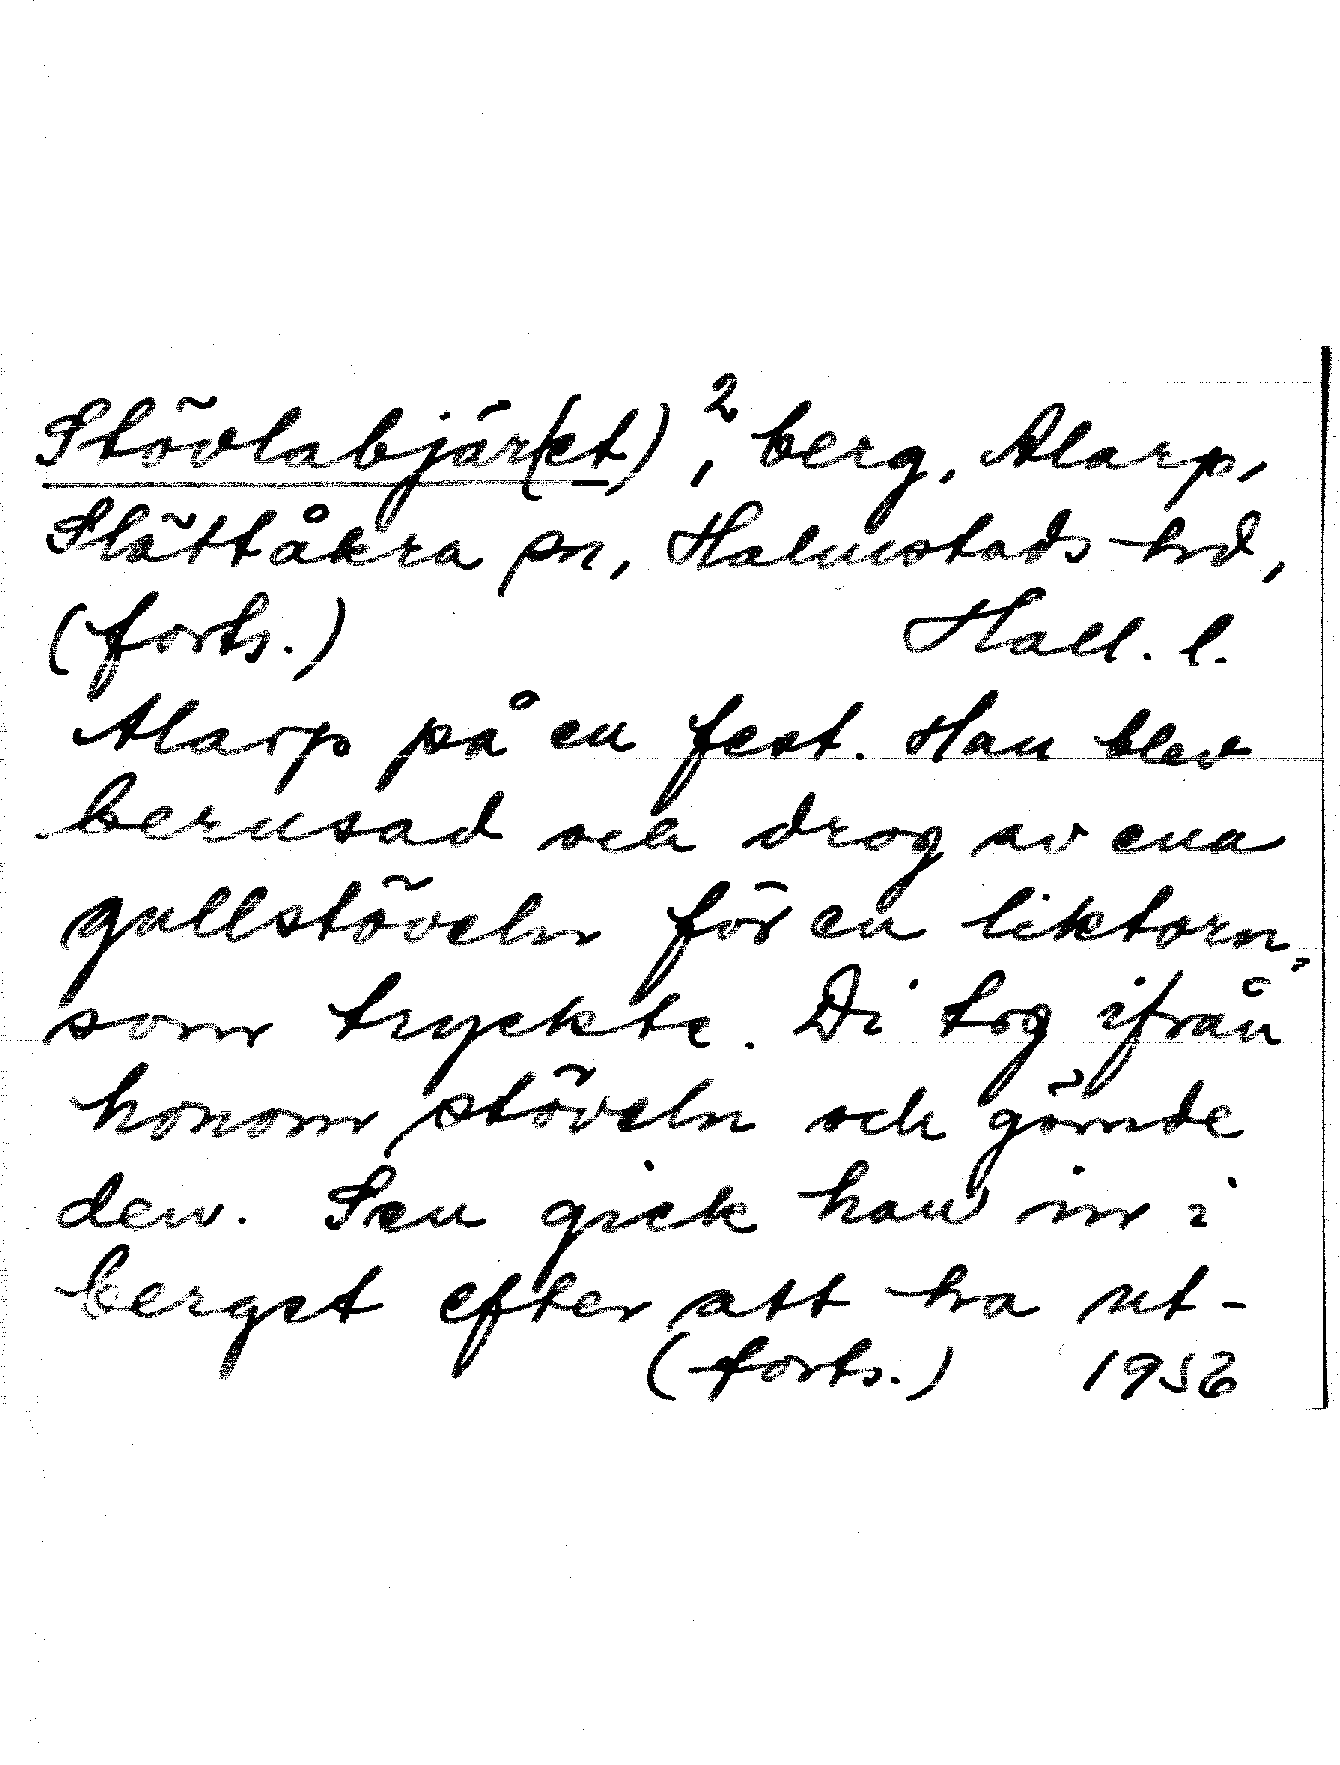 Stövlabjär(et)², berg, Alarp,
Slättåkra sn, Halmstads hd,
(forts.) Hall. l.
Alarp på en fest. Han blev
berusad och drog av ena
gullstöveln för en liktorn,
som tryckte. Di tog ifrån
honom stöveln och gömde
den. Sen gick han in i
berget efter att ha ut-
(forts.) 1952